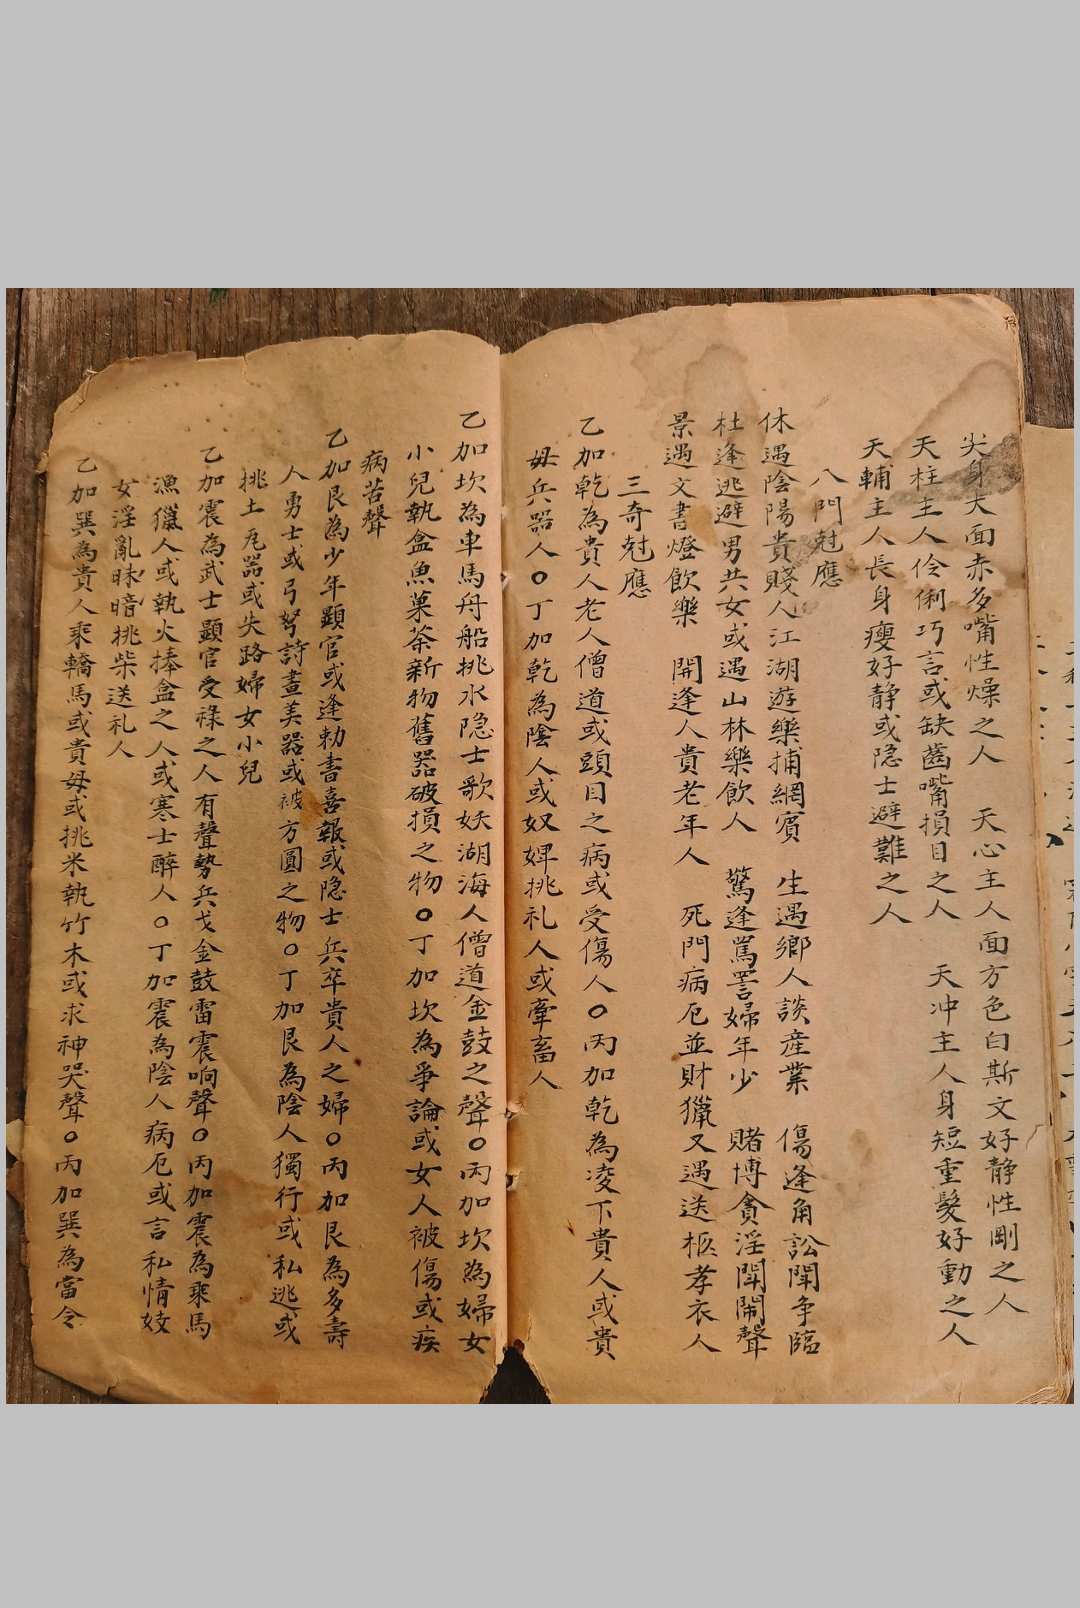 尖身大面赤多嘴性燥之人　天心主人面方色白斯文好静性剛之人
天柱主人伶俐巧言或缺齒嘴損目之人　天冲主人身短重髮好動之人
天輔主人長身瘦好静或隐士避難之人
八門尅應
休遇陰陽貴賤人江湖遊樂捕網賓　生遇鄉人談産業　傷逢角訟聞争臨
杜逢逃避男共女或遇山林樂飲人　驚逢罵詈婦年少　賭博貪淫聞鬧聲
景遇文書燈飲樂　開逢人貴老年人　死門病厄並財獵又遇送柩孝衣人
三奇尅應
乙加乾為貴人老人僧道或頭目之病或受傷人〇丙加乾為凌下貴人或貴
毋兵器人〇丁加乾為陰人或奴婢挑礼人或牽畜人
乙加坎為車馬舟船挑水隐士歌妖湖海人僧道金鼓之聲〇丙加坎為婦女
小兒執盒魚菓茶新物舊器破損之物〇丁加坎為爭論或女人被傷或疾
病苦聲
乙加艮為少年顕官或逢勅書喜報或隐士兵卒貴人之婦〇丙加艮為多壽
人勇士或弓弩詩畫美器或被方圓之物〇丁加艮為陰人獨行或私逃或
挑土瓦器或失路婦女小兒
乙加震為武士顕官受禄之人有聲勢兵戈金鼓雷震响聲〇丙加震為乘馬
漁獵人或執火捧盒之人或寒士醉人〇丁加震為陰人病厄或言私情妓
女淫亂昧暗挑柴送礼人
乙加巽為貴人乘轎馬或貴毋或挑米執竹木或求神哭聲〇丙加巽為當令